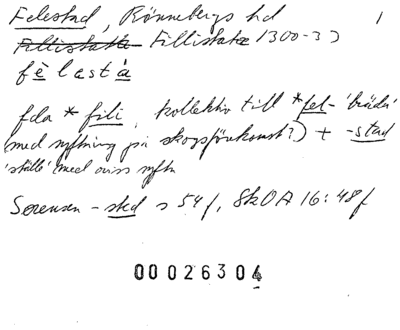 Felestad, Rönnebergs hd 1
Fillistatha Fillistatæ 1300-33
fèlastá
fda *fili, kollektiv till *fel- 'bräda'
(med syftning på skogsförekomst?) + -stad
'ställe' (med oviss syftn
Sørensen -sted s 54 f, SkOA 16:48 f
00026304